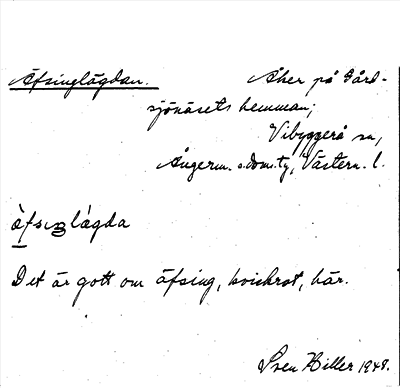 Äfsinglägdan. Åker på Gård-
sjönäsets hemman;
Vibyggerå sn,
Ångerm. s. dom. tg, Västern. l.
äfsıŋlàgda
Det är gott om äfsing, kvickrot, här.
Sven Hiller 1948.